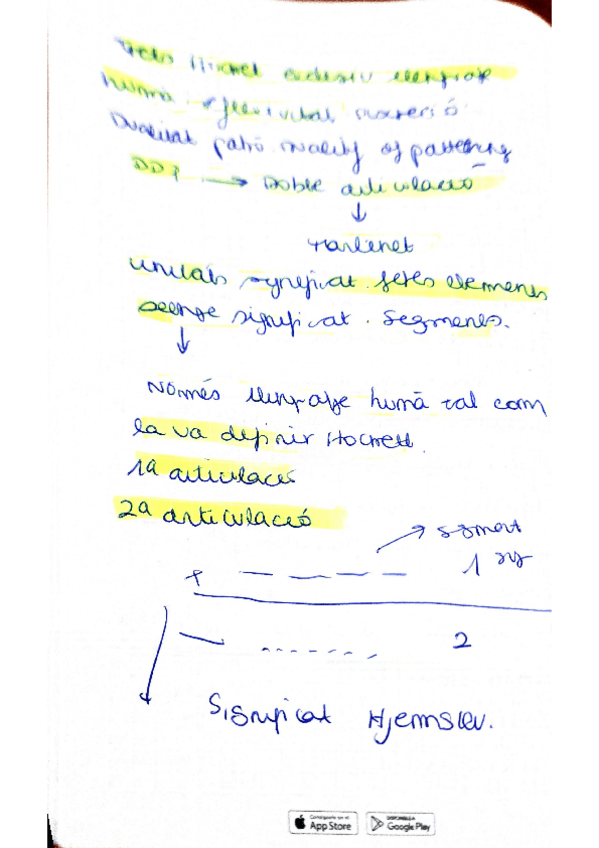 Hocket exclusiu llenguatge
humà.
Dualitat patró duality of patterning
DDP → Doble articulació
↓
Martinet
unitats significat. fetes elements
sense significat. segments.
↓
Només llenguatge humà tal com
la va definir Hockett.
1a articulació
2a articulació
→ segment
+ — — — — 1
— - - - - - - 2
Significat Hjemslev.
Consíguelo en el
App Store
DISPONIBLE A
Google Play